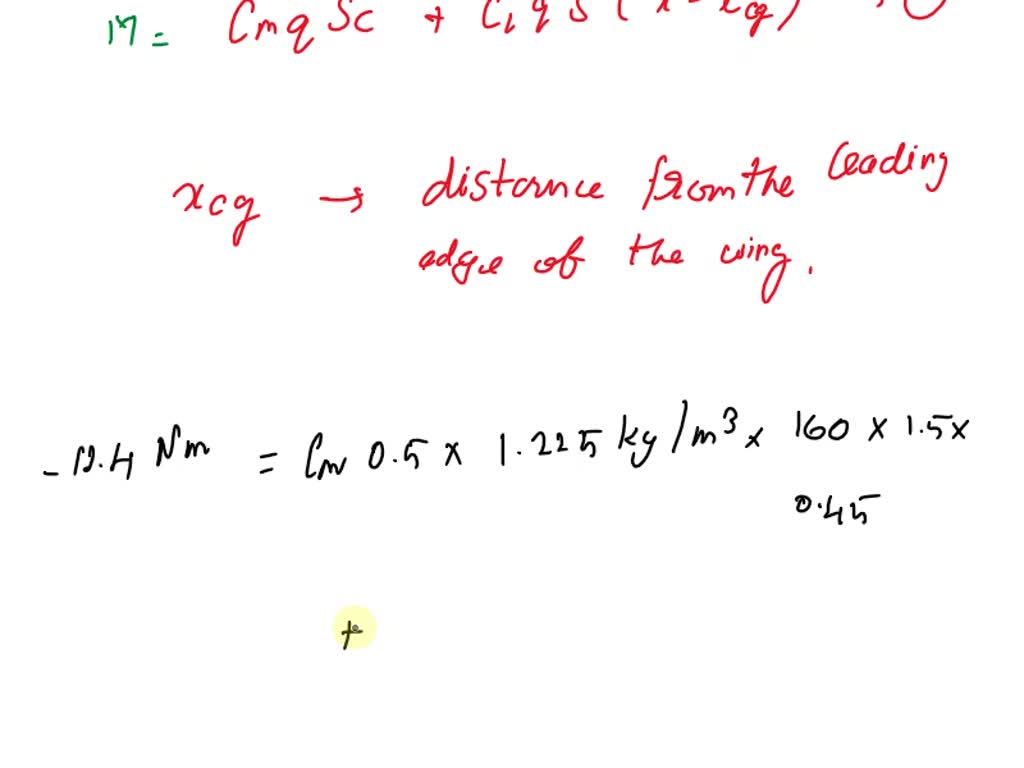 M = Cm q Sc + CL q S ( x - xcg )
xcg → distance from the leading
edge of the wing.
-12.4 Nm = Cm 0.5 x 1.225 kg/m³ x 160 x 1.5 x
0.45
+